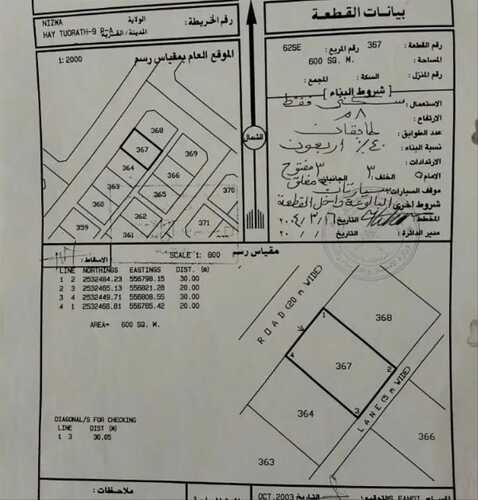 بيانات القطعة
رقم القطعة: 367 رقم المربع: 62SE
المساحة: 600 SQ. M.
رقم المنزل: السكة: المجمع:
شروط البناء
الاستعمال: سكني فقط
الارتفاع: ٨م
عدد الطوابق: طابقان
نسبة البناء: ٤٠٪ اربعون
الارتدادات:
الامام ٥ الخلف: ٣ الجانبان: ٣ مفتوح
موقف السيارات: سيارتان
شروط اخرى: البالوعة داخل القطعة
المخطط: التاريخ:
مدير الدائرة: التاريخ: ٢٠٠
الشمال
رقم الخريطة:
الولاية NIZWA
المدينة/القرية HAY TUORATH-9
الموقع العام بمقياس رسم 1:2000
368
367
369
366
364
365
363
370
362
361
371
مقياس رسم
SCALE 1: 800
الاسقاط:
LINE NORTHINGS EASTINGS DIST. (m)
1 2 2532484.23 556798.15 30.00
2 3 2532465.13 556821.28 20.00
3 4 2532449.71 556808.55 30.00
4 1 2532468.81 556785.42 20.00
AREA= 600 SQ. M.
ROAD (20 m WIDE)
1
368
4
367
2
LANE (5 m WIDE)
3
364
366
363
DIAGONAL/S FOR CHECKING
LINE DIST (m)
1 3
ملاحظات:
OCT.2003
التاريخ